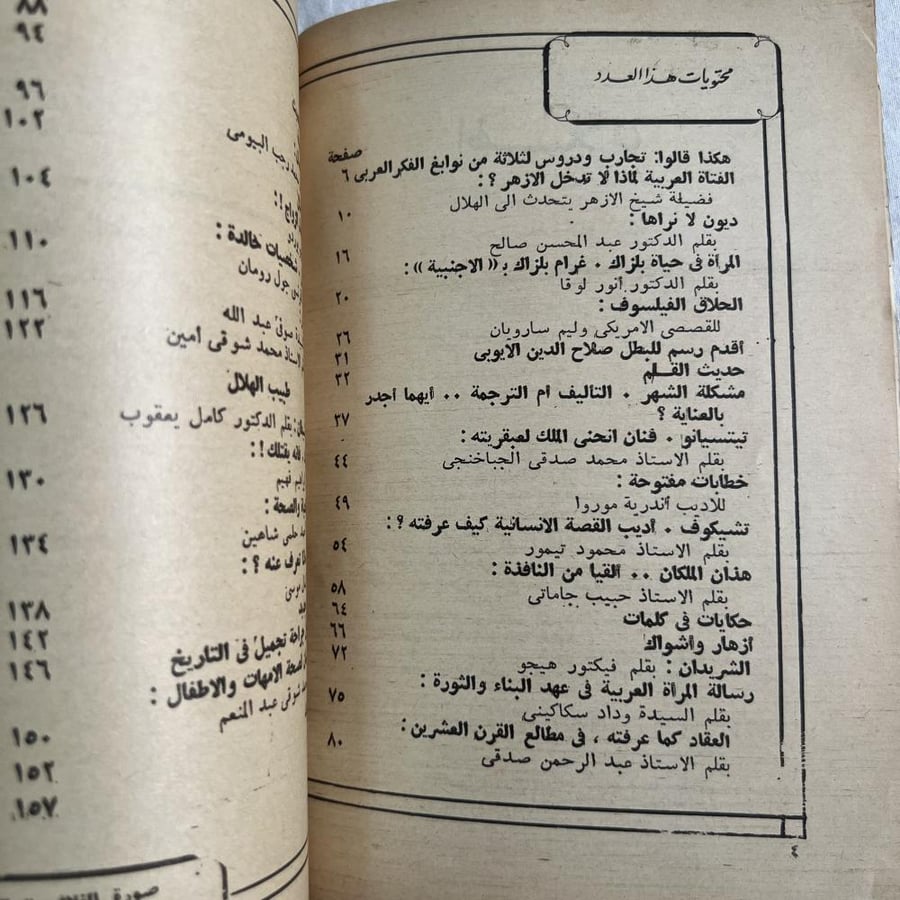 محتويات هذا العدد
صفحة
هكذا قالوا: تجارب ودروس لثلاثة من نوابغ الفكر العربى ٦
الفتاة العربية لماذا لا تدخل الازهر ؟ :
فضيلة شيخ الازهر يتحدث الى الهلال ١٠
ديون لا نراها :
بقلم الدكتور عبد المحسن صالح ١٦
المرأة فى حياة بلزاك . غرام بلزاك بـ « الاجنبية » :
بقلم الدكتور أنور لوقا ٢٠
الحلاق الفيلسوف :
للقصصى الامريكى وليم سارويان ٢٦
أقدم رسم للبطل صلاح الدين الايوبى ٣١
حديث القلم ٣٢
مشكلة الشهر . التأليف أم الترجمة .. أيهما أجدر
بالعناية ؟ ٣٧
تيتسيانو . فنان انحنى الملك لعبقريته :
بقلم الاستاذ محمد صدقى الجباخنجى ٤٤
خطابات مفتوحة :
للاديب أندرية موروا ٤٩
تشيكوف . أديب القصة الانسانية كيف عرفته ؟ :
بقلم الاستاذ محمود تيمور ٥٤
هذان الملكان .. ألقيا من النافذة :
بقلم الاستاذ حبيب جاماتى ٥٨
حكايات فى كلمات ٦٤
أزهار وأشواك ٦٦
الشريدان : بقلم فيكتور هيجو ٧٢
رسالة المرأة العربية فى عهد البناء والثورة :
بقلم السيدة وداد سكاكينى ٧٥
العقاد كما عرفته ، فى مطالع القرن العشرين :
بقلم الاستاذ عبد الرحمن صدقى ٨٠
٤
٨٨
٩٤
٩٦
١٠٢
رجب البيومى
١٠٤
شخصيات خالدة :
جول رومان
١١٠
١١٦
صوفى عبد الله
١٢٢
محمد شوقى أمين
طبيب الهلال
بقلم الدكتور كامل يعقوب ١٢٦
يقتلك ! :
فهيم ١٣٠
والصحة :
حلمى شاهين ١٣٤
تعرف عنه ؟ :
موسى
١٣٨
١٤٢
تجميل فى التاريخ ١٤٦
لصحة الامهات والاطفال :
عبد المنعم
١٥٠
١٥٢
١٥٧
صورة